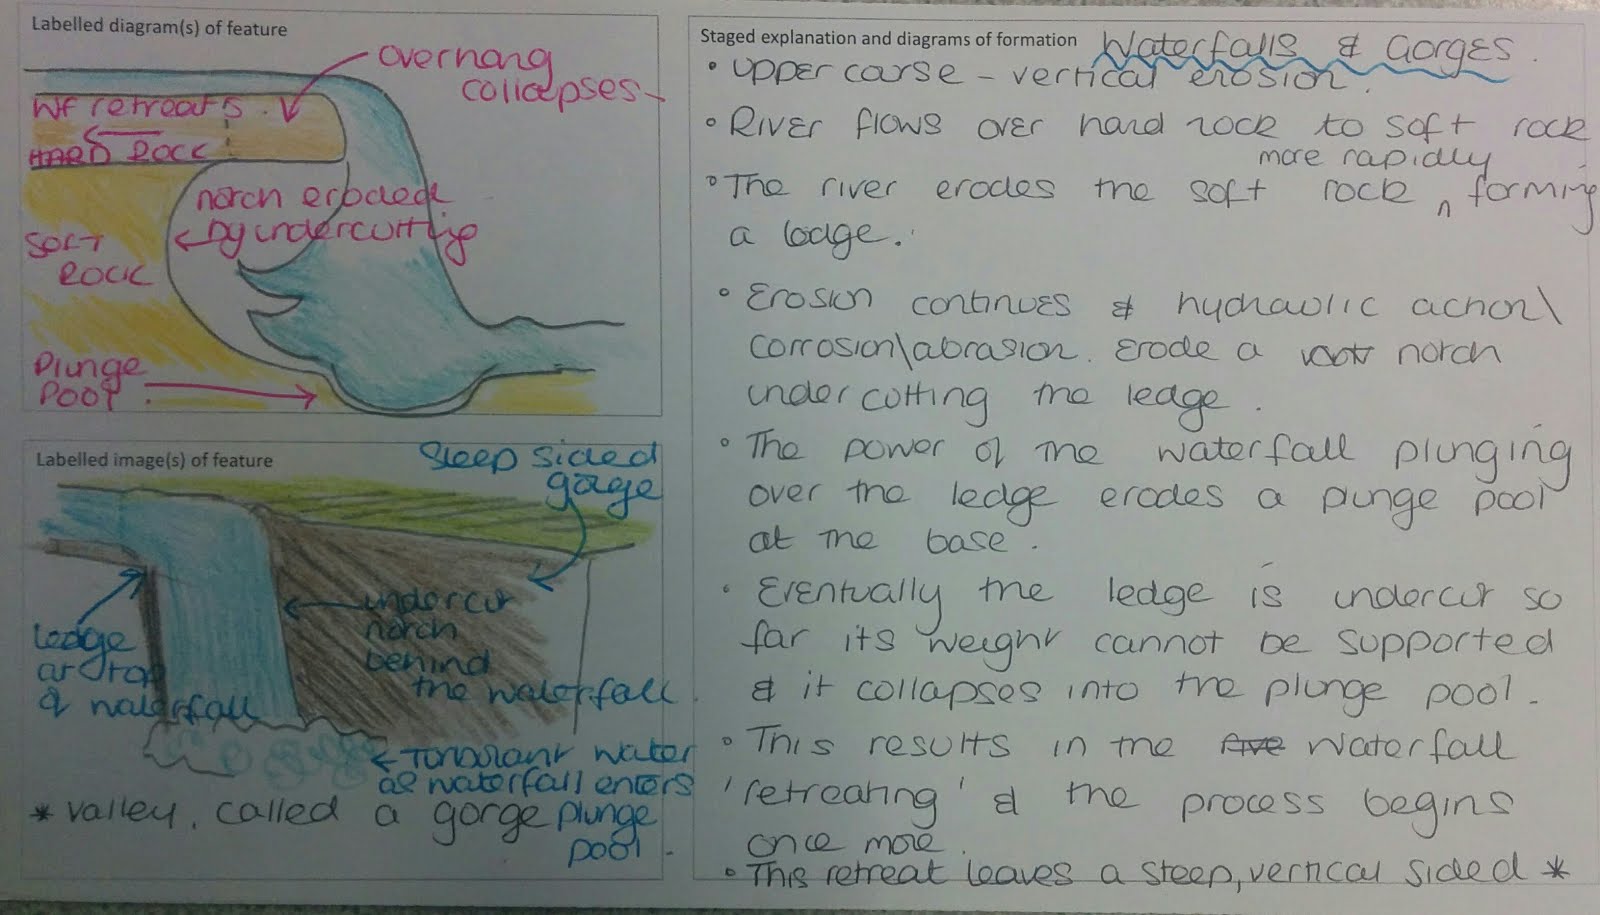 Labelled diagram(s) of feature
overhang
collapses
WF retreats
HARD ROCK
notch eroded
by undercutting
SOFT
ROCK
Plunge
Pool
Labelled image(s) of feature
Steep sided
gorge
undercut
notch
behind
the waterfall
Ledge
at top
of waterfall
Tburlant water
as waterfall enters
plunge
pool
* valley, called a gorge
Staged explanation and diagrams of formation
Waterfalls & Gorges.
• Upper carse - vertical erosion.
• River flows over hard rock to soft rock
more rapidly
• The river erodes the soft rock ^ forming
a ledge.
• Erosion continues & hydraulic action\
corrosion\abrasion. Erode a notch
undercutting the ledge.
• The power of the waterfall plunging
over the ledge erodes a plunge pool
at the base.
• Eventually the ledge is undercut so
far its weight cannot be supported
& it collapses into the plunge pool.
• This results in the waterfall
'retreating' & the process begins
once more.
• This retreat leaves a steep, vertical sided *